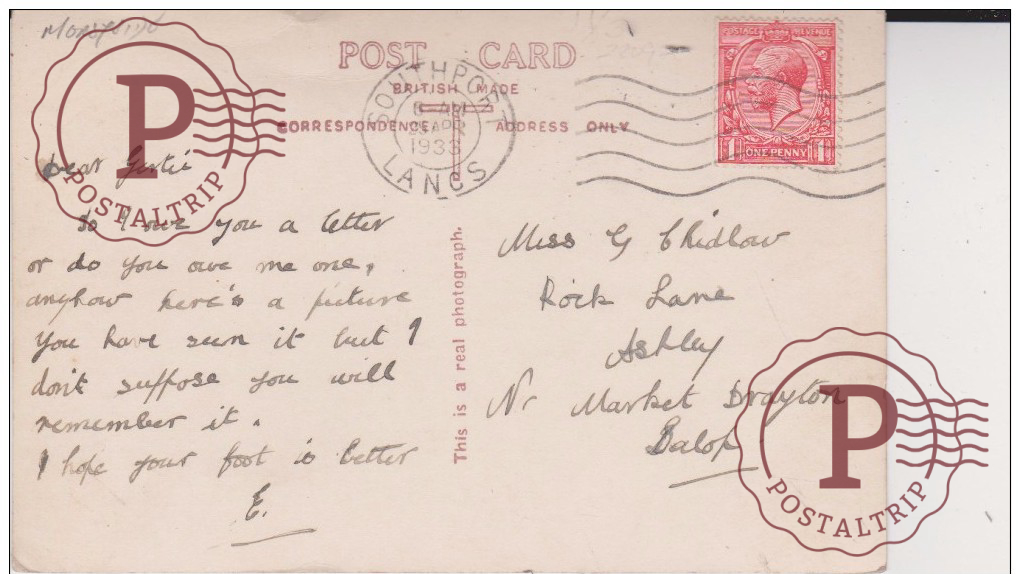 POST CARD
BRITISH MADE
CORRESPONDENCE. ADDRESS ONLY
SOUTHPORT
1933
LANCS
POSTAGE REVENUE
1 ONE PENNY 1
P
POSTALTRIP
Dear Gertie
So I owe you a letter
or do you owe me one,
anyhow here's a picture
you have seen it but I
don't suppose you will
remember it.
I hope your foot is better
E.
This is a real photograph.
Miss G Chidlow
Rock Lane
Ashley
Nr Market Drayton
Salop
P
POSTALTRIP